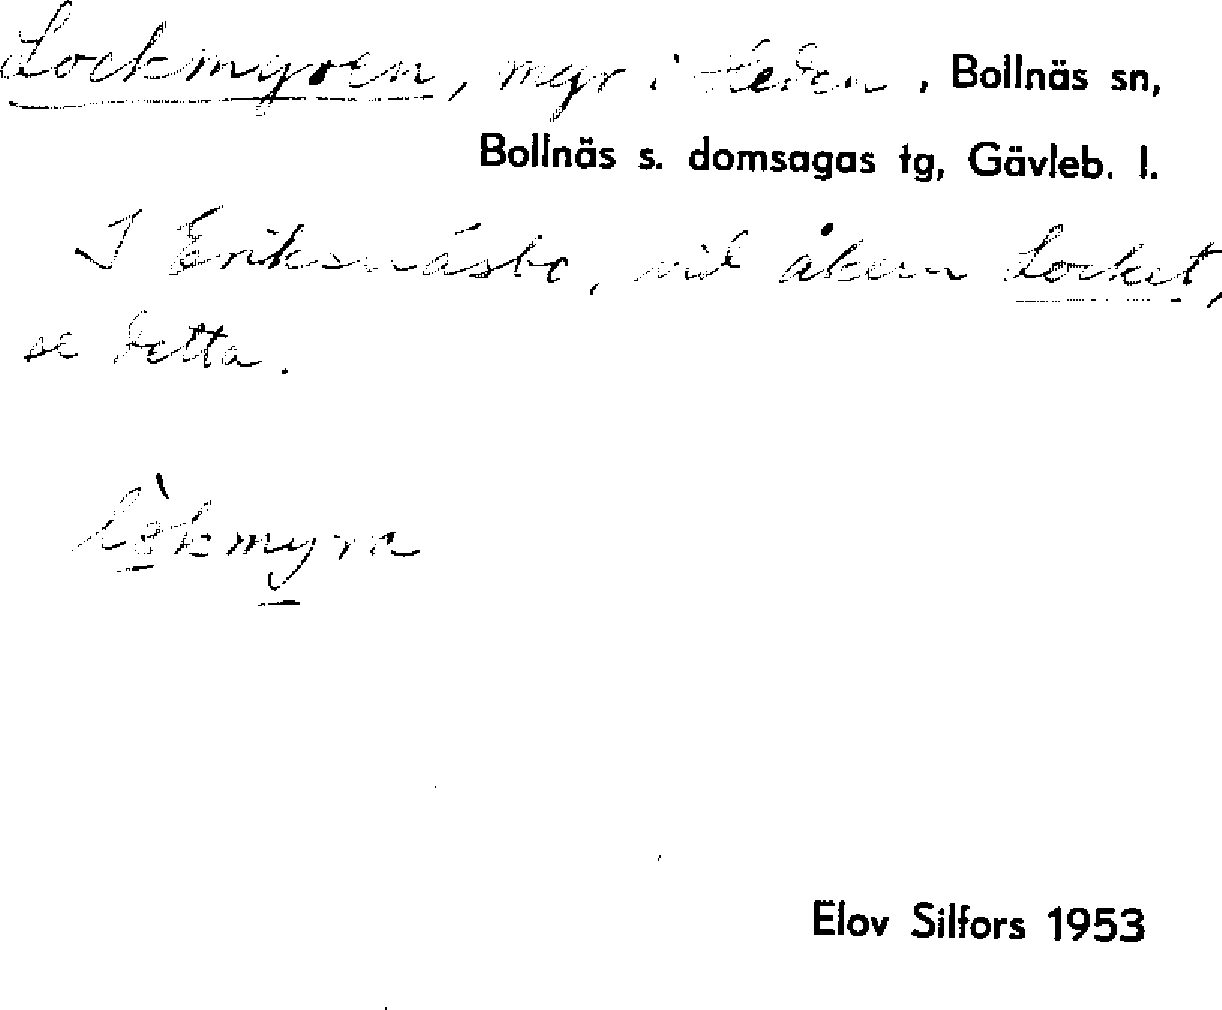 Lockmyren, myr i Heden, Bollnäs sn,
Bollnäs s. domsagas tg, Gävleb. l.
I Eriksnäsbo, vid åkern Locket,
se detta.
lòkmyra
Elov Silfors 1953